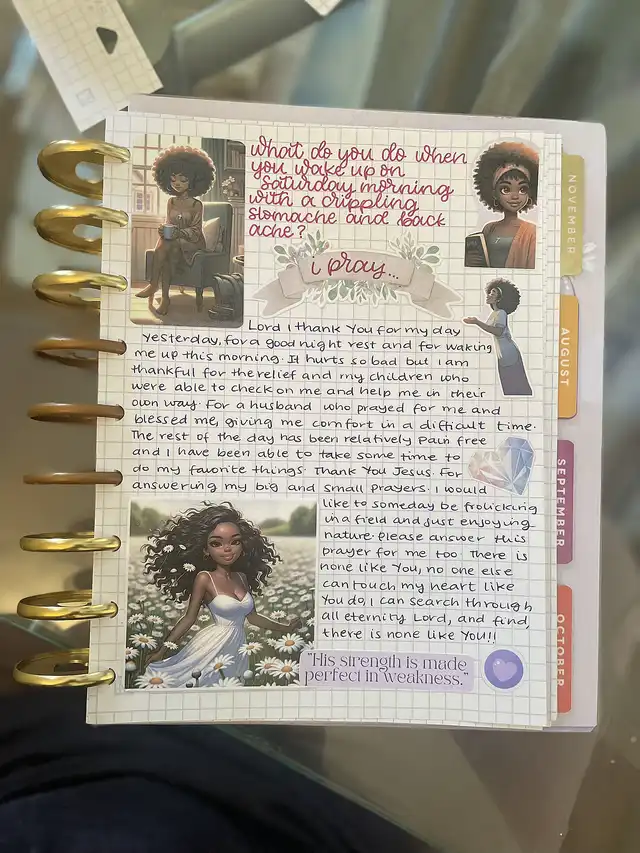 What do you do when
you wake up on
Saturday morning
with a crippling
stomache and back
ache?
i pray...
Lord I thank You for my day
yesterday, for a good night rest and for waking
me up this morning. It hurts so bad but I am
thankful for the relief and my children who
were able to check on me and help me in their
own way. For a husband who prayed for me and
blessed me, giving me comfort in a difficult time.
The rest of the day has been relatively pain free
and I have been able to take some time to
do my favorite things. Thank You Jesus. For
answering my big and small prayers. I would
like to someday be frolicking
in a field and just enjoying
nature. please answer this
prayer for me too. There is
none like You, no one else
can touch my heart like
You do, I can search through
all eternity Lord, and find,
there is none like You!!
"His strength is made
perfect in weakness."
NOVEMBER
AUGUST
SEPTEMBER
OCTOBER